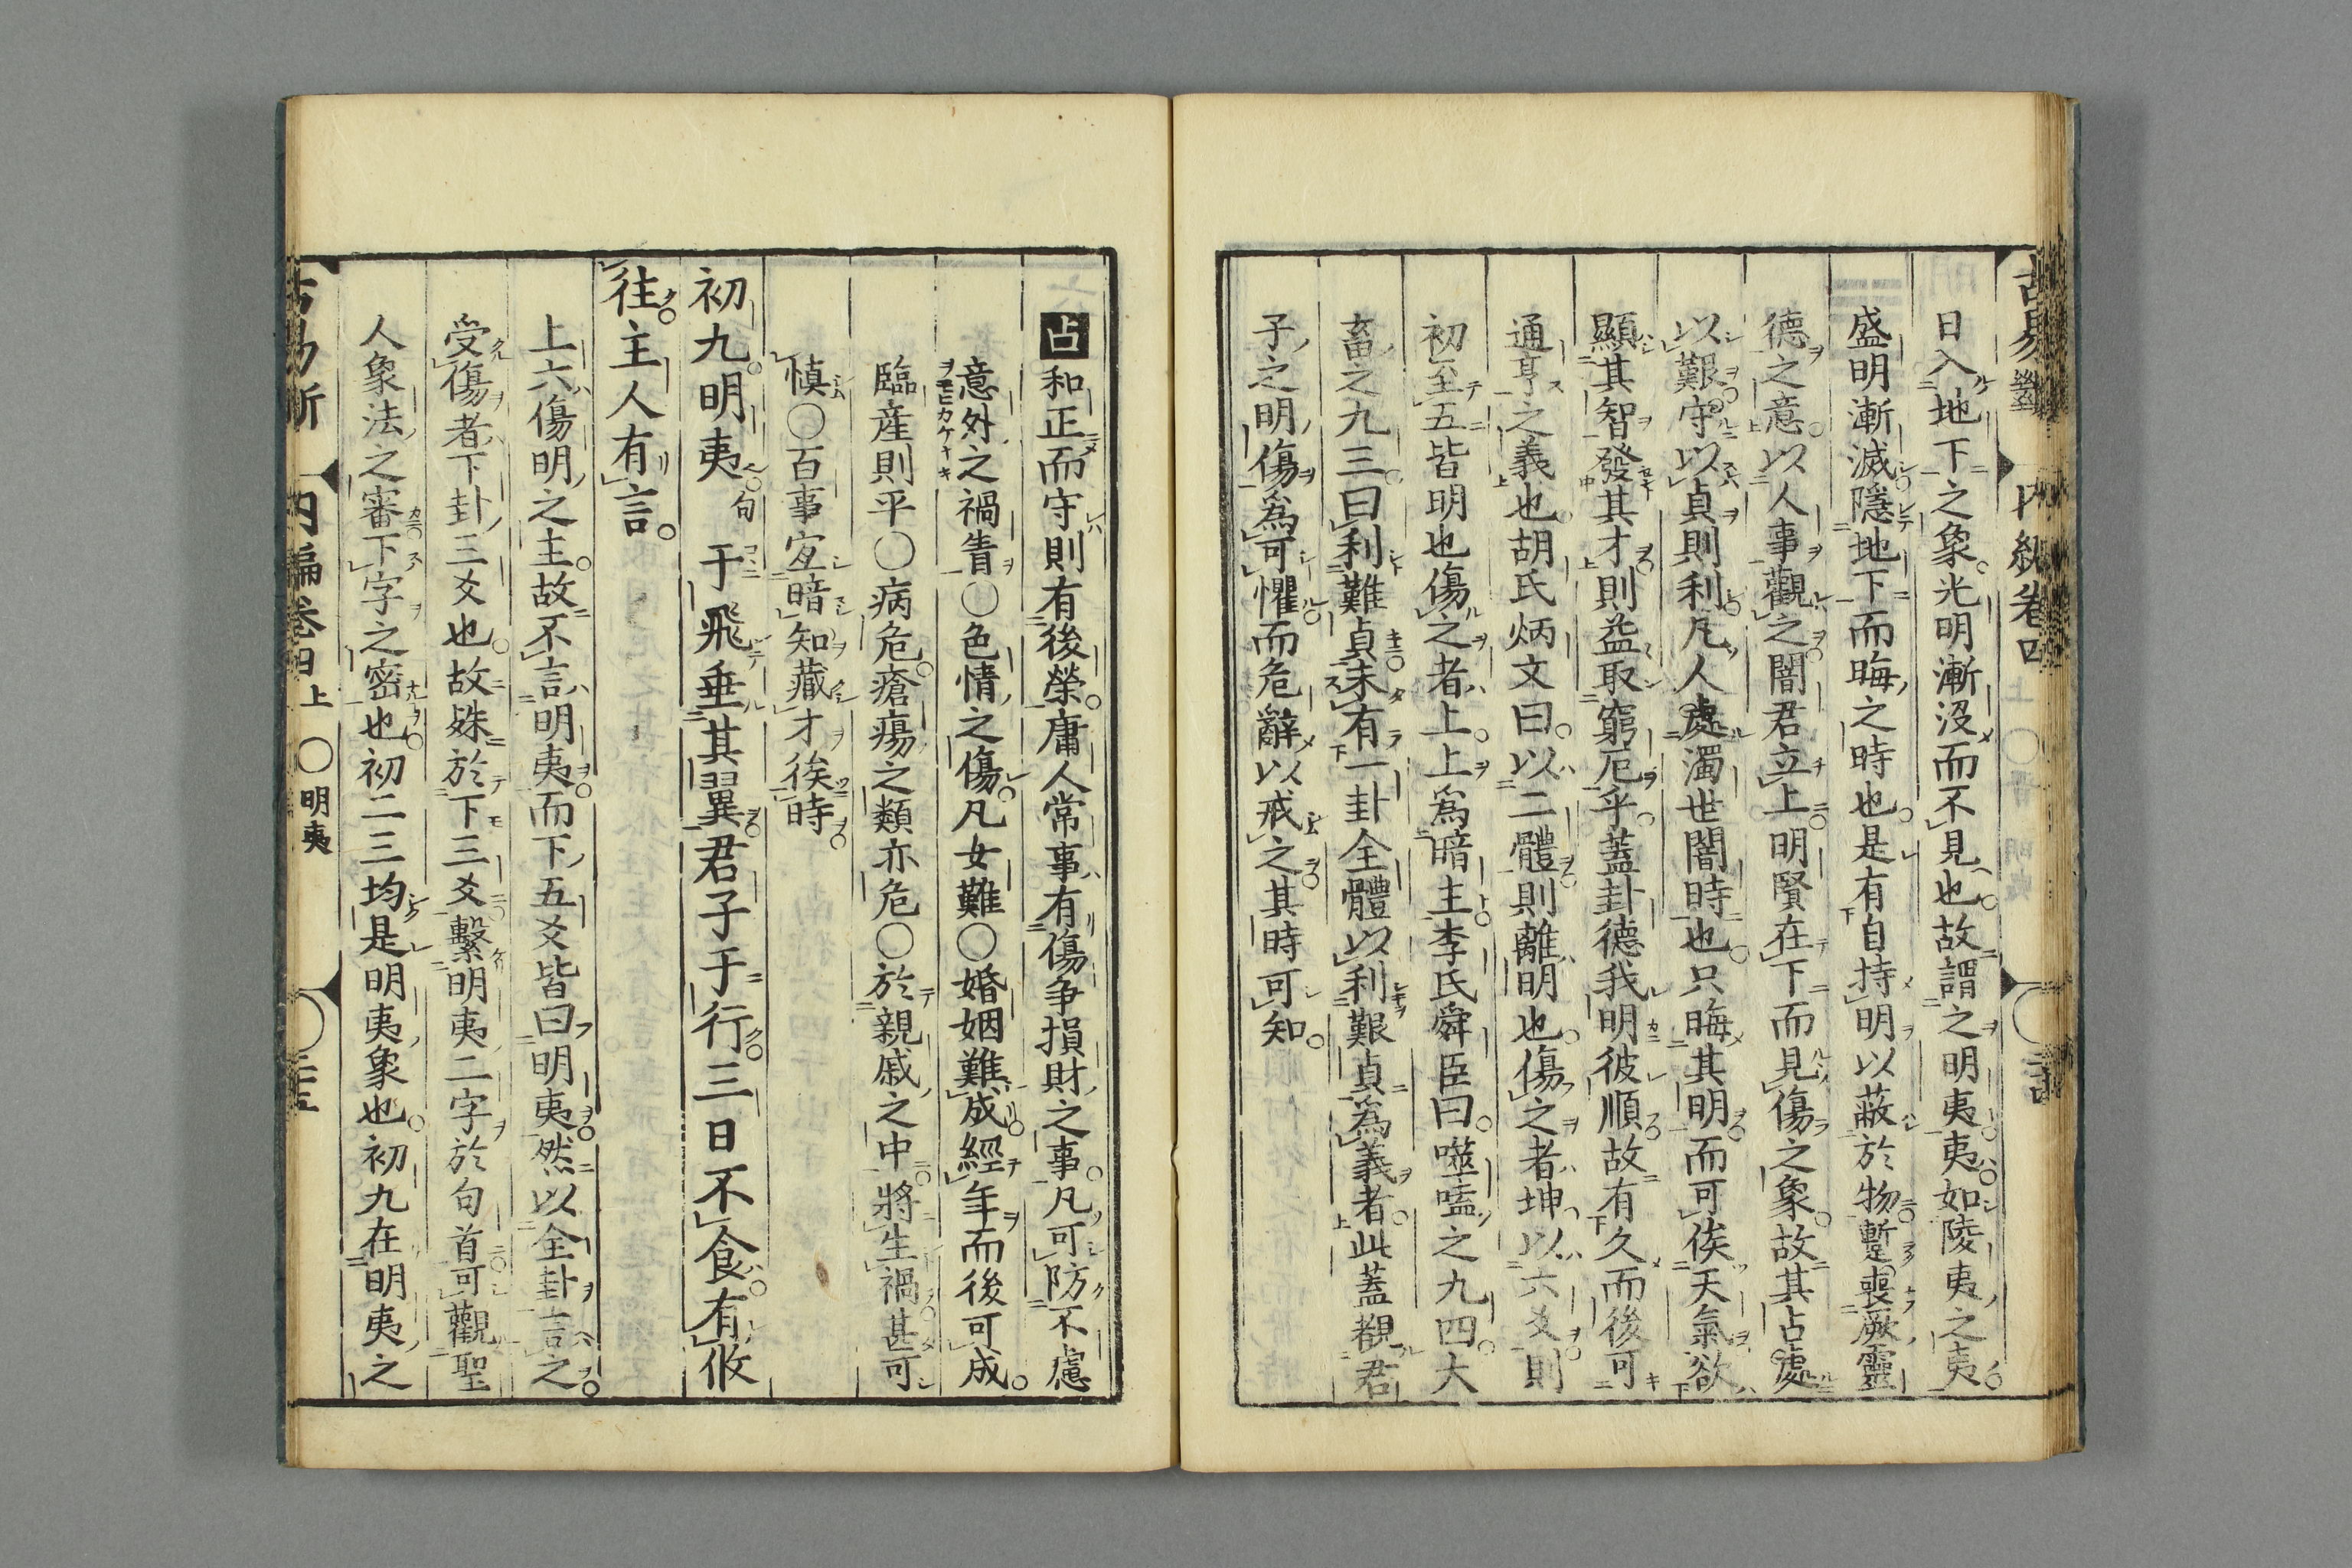 日入地下之象光明漸沒而不見也故謂之明夷夷如陵夷之夷
盛明漸滅隱地下而晦之時也是有自持明以蔽於物蹔喪厥靈
德之意以人事觀之闇君立上明賢在下而見傷之象故其占處
以艱守以貞則利凡人處濁世闇時也只晦其明而可俟天氣欲
顯其智發其才則益取窮厄乎蓋卦德我明彼順故有久而後可
通亨之義也胡氏炳文曰以二體則離明也傷之者坤以六爻則
初至五皆明也傷之者上上爲暗主李氏舜臣曰噬嗑之九四大
畜之九三曰利難貞未有一卦全體以利艱貞為義者此蓋覩君
子之明傷為可懼而危辭以戒之其時可知
占和正而守則有後榮庸人常事有傷争損財之事凡可防不慮
意外之禍眚○色情之傷凡女難○婚姻難成經年而後可成
臨産則平○病危瘡瘍之類亦危○於親戚之中將生禍甚可
慎○百事宜暗知藏才俟時
初九明夷句于飛垂其翼君子于行三日不食有攸
往主人有言
上六傷明之主故不言明夷而下五爻皆曰明夷然以全卦言之
受傷者下卦三爻也故殊於下三爻繫明夷二字於句首可觀聖
人象法之審下字之密也初二三均是明夷象也初九在明夷之
古易斷 内編卷四上 ○明夷